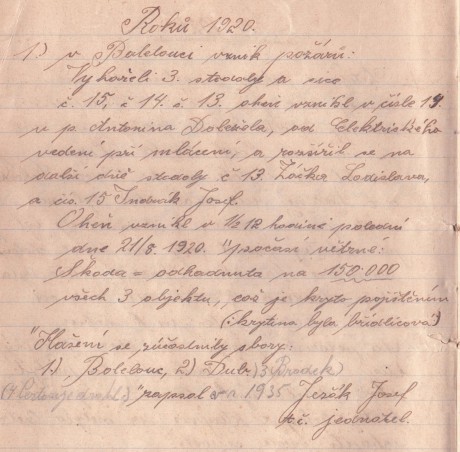 Roků 1920.
1.) v Bolelouci vznik požárů:
Vyhořeli 3. stodoly a sice
č. 15, č 14. č 13. oheň vznikl v čísle 14
u p. Antonina Doležela, od Elektrického
vedení při mlácení, a rozšířil se na
další dvě stodoly č 13. Žáčka Ladislava,
a čís. 15 Indrák Josef.
Oheň vznikl v ½ 12 hodině polední
dne 21/8. 1920. "počasí větrné:
Škoda = odhadnuta na 150.000
všech 3 objektu, což je kryto pojištěním
(: krytina byla břidlicová)
"Hašení se zúčastnily sbory:
1.) Bolelouc, 2) Dub, 3 Brodek
"zapsal v r 1935 Ježák Josef
t. č. jednatel.